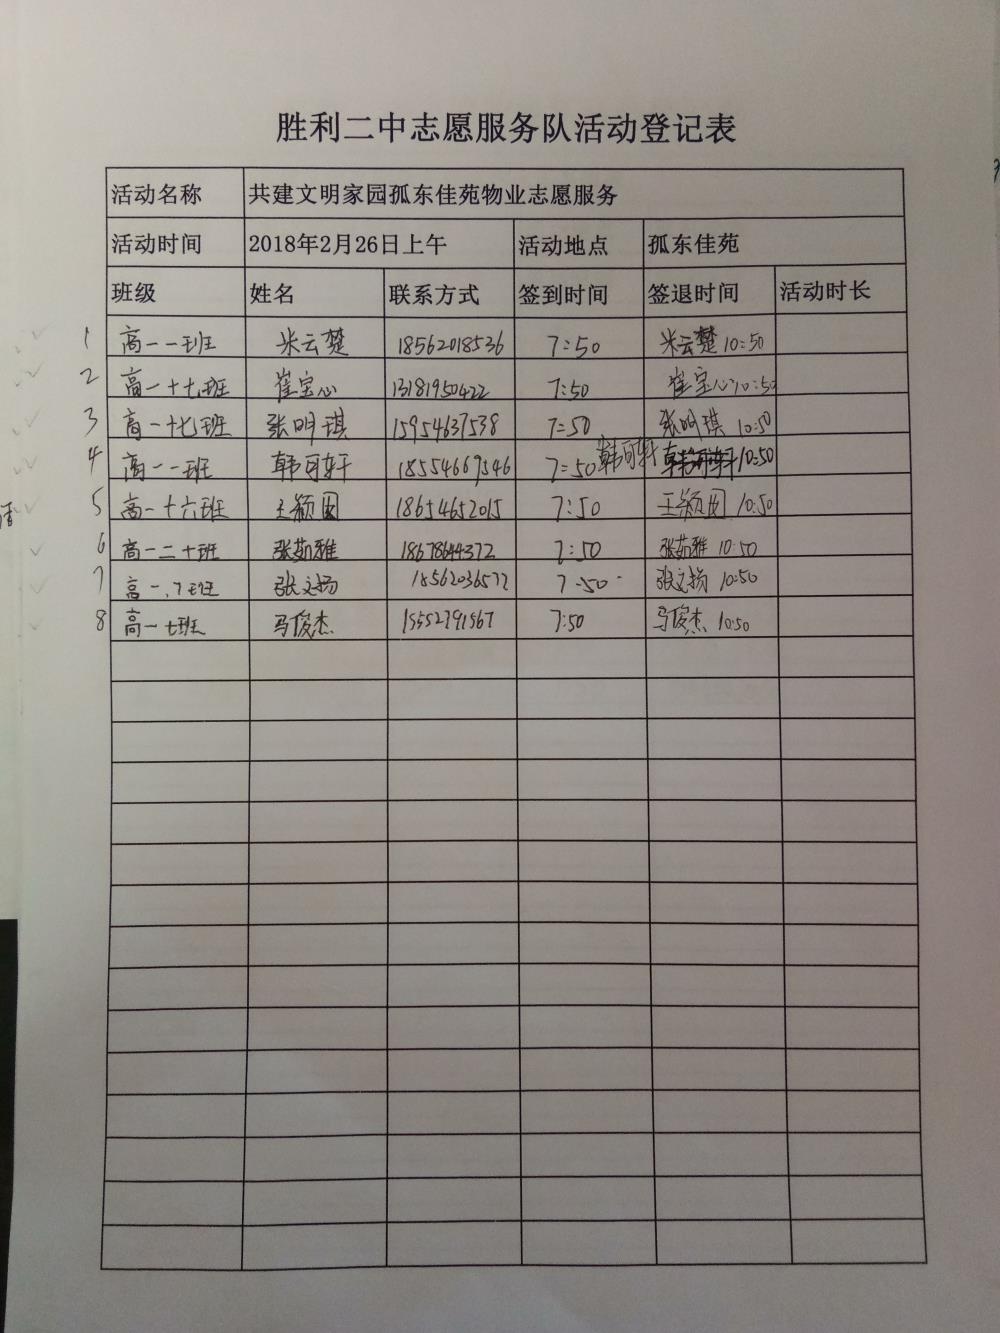 胜利二中志愿服务队活动登记表
活动名称 共建文明家园孤东佳苑物业志愿服务
活动时间 2018年2月26日上午 活动地点 孤东佳苑
班级 姓名 联系方式 签到时间 签退时间 活动时长
1 高一一班 米云楚 18562018536 7:50 米云楚 10:50
2 高一十七班 崔宝心 13181950422 7:50 崔宝心 10:50
3 高一十七班 张明琪 15954637538 7:50 张明琪 10:50
4 高一一班 韩可轩 18554669546 7:50 韩可轩 10:50
5 高一十六班 王颖囡 18654652015 7:50 王颖囡 10:50
6 高一二十班 张茹雅 18678644372 7:50 张茹雅 10:50
7 高一 班 张文扬 18562036572 7:50 张文扬 10:50
8 高一七班 马俊杰 7:50 马俊杰 10:50